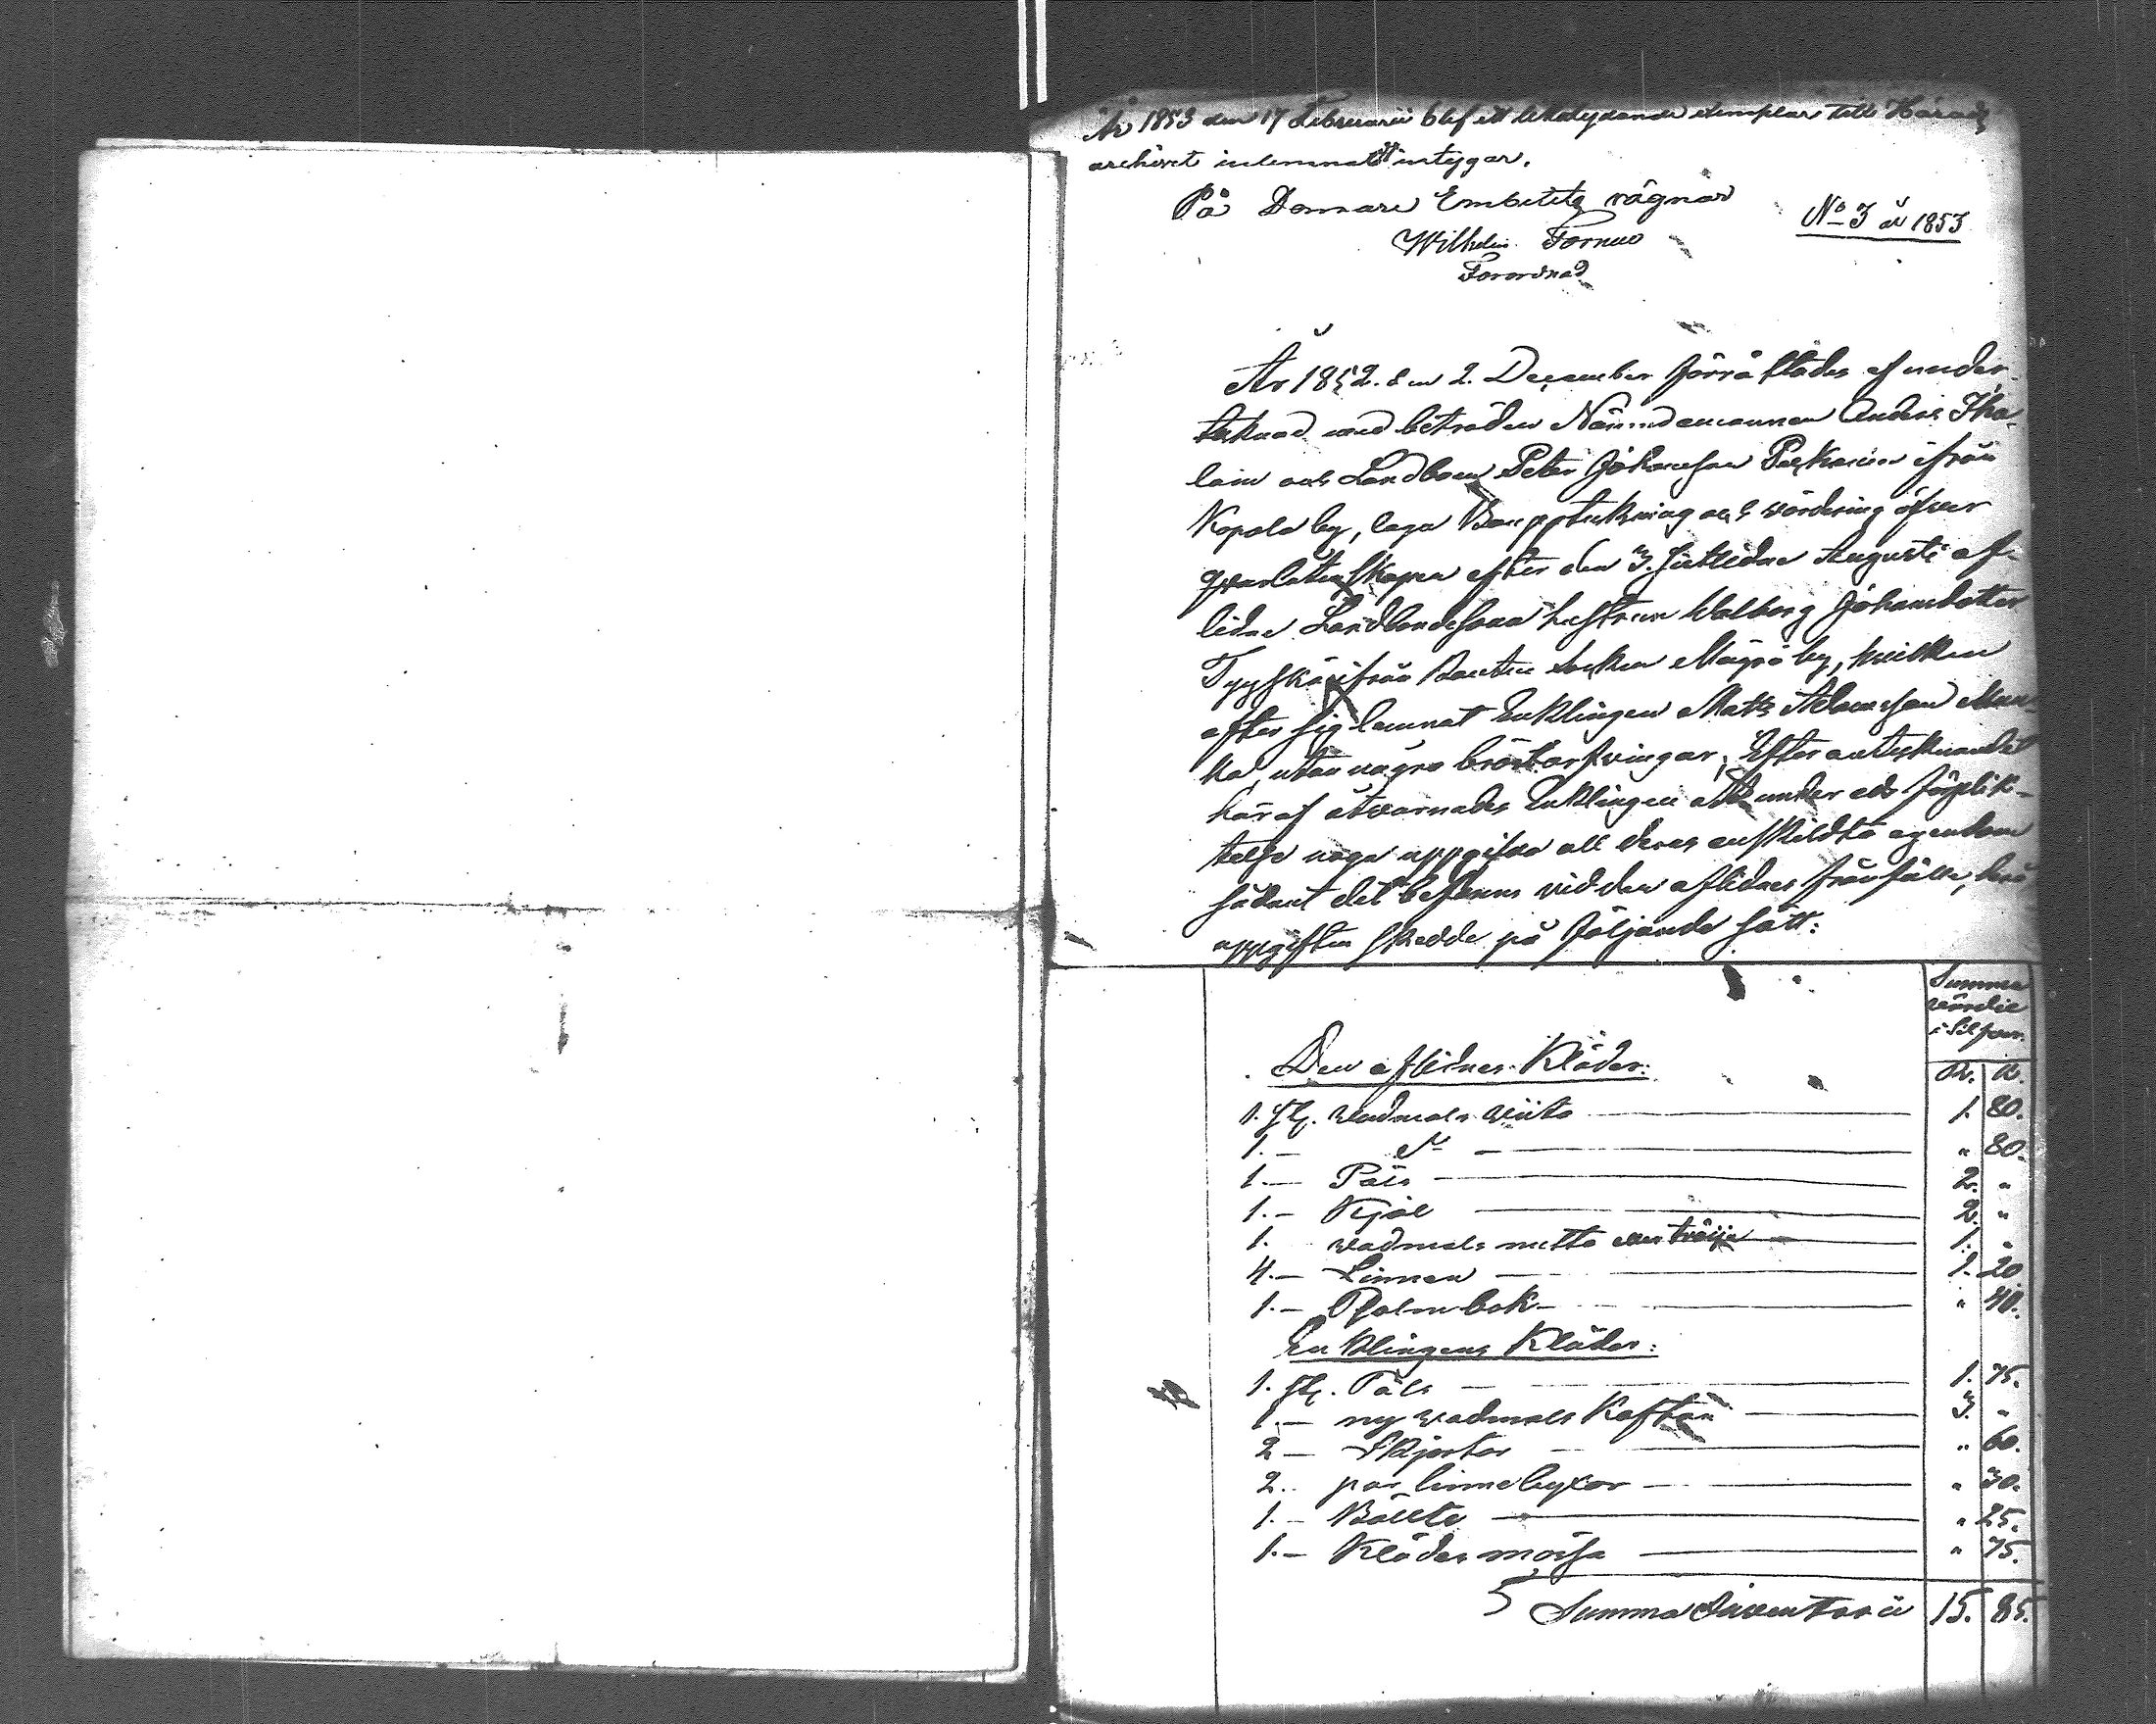 År 1853 den 17 Februarii blef ett likalydande exemplar till Härads
archivet inlemnat, intygar.
På Domare Embetets vägnar
Wilhelm Forneo
Förordnad
No 3 år 1853
År 1852. den 2. December förrättades af under-
teknad med biträden Nämndemannen Anders Iha-
lain och Landboen Peter Johansson Paskainen ifrån
Kopola by, laga Bouppteckning och värdering öfver
qvarlåtenskapen efter den 3. sistledne Augusti af-
lidne Landbondesonna hustrun Walborg Johansdotter
Tyyskä ifrån socken by, hvilken
efter sig lemnat Enklingen Matts Adamsson Mun-
ka, utan några bröstarfvingar; Efter anteknandet
häraf åtvarnades Enklingen att under eds förplik-
telse noga uppgifva all deras enskildta egendom
sådant det befanns vid den aflidnes frånfälle, 
uppgiften skedde på följande sätt:
Summa
värdie
i Silfver.
Den aflidnes Kläder: R. K.
1. st. wadmals wiita 1. 80.
1. — d:o " 80.
1. — Päls 2. "
1. — Kjol 2. "
1. wadmals mutta tröija 1. "
4. — Linnen 1. 20
1. — Psalmbok " 40.
Enklingens Kläder:
1. st. Päls 1. 75.
1. — ny wadmals Kaftan 3. "
2 — Skjortor " 60.
2.. par linne byxor " 30.
1. — Bällte " 25.
1. — Klädes mössa " 75.
Summa Inventarii 15. 85.